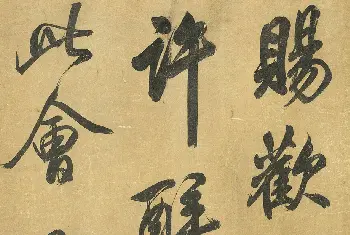 賜歡
許醉
此會